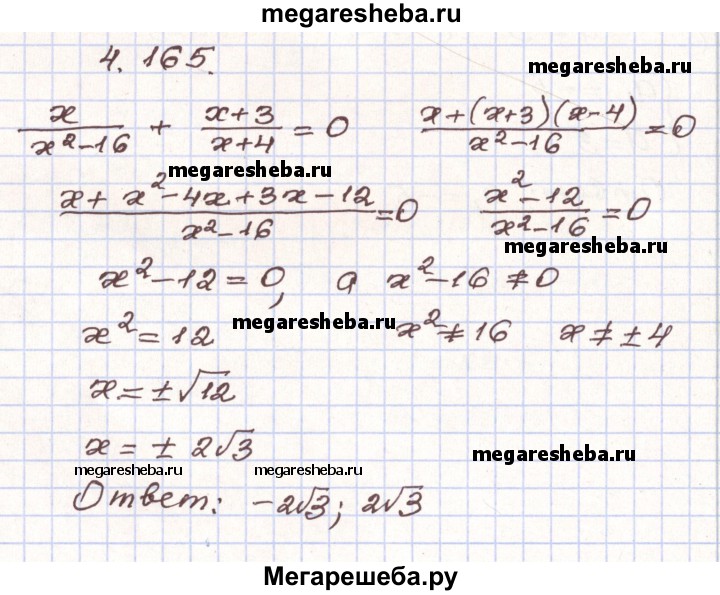 megaresheba.ru
4. 165.
megaresheba.ru
x/(x²-16) + (x+3)/(x+4) = 0 (x+(x+3)(x-4))/(x²-16) = 0
megaresheba.ru
(x+x²-4x+3x-12)/(x²-16) = 0 (x²-12)/(x²-16) = 0
megaresheba.ru
x²-12=0, а x²-16≠0
megaresheba.ru
x²=12 x²≠16 x≠±4
x=±√12
x=±2√3
megaresheba.ru
megaresheba.ru megaresheba.ru
Ответ: -2√3; 2√3
Мегарешеба.ру